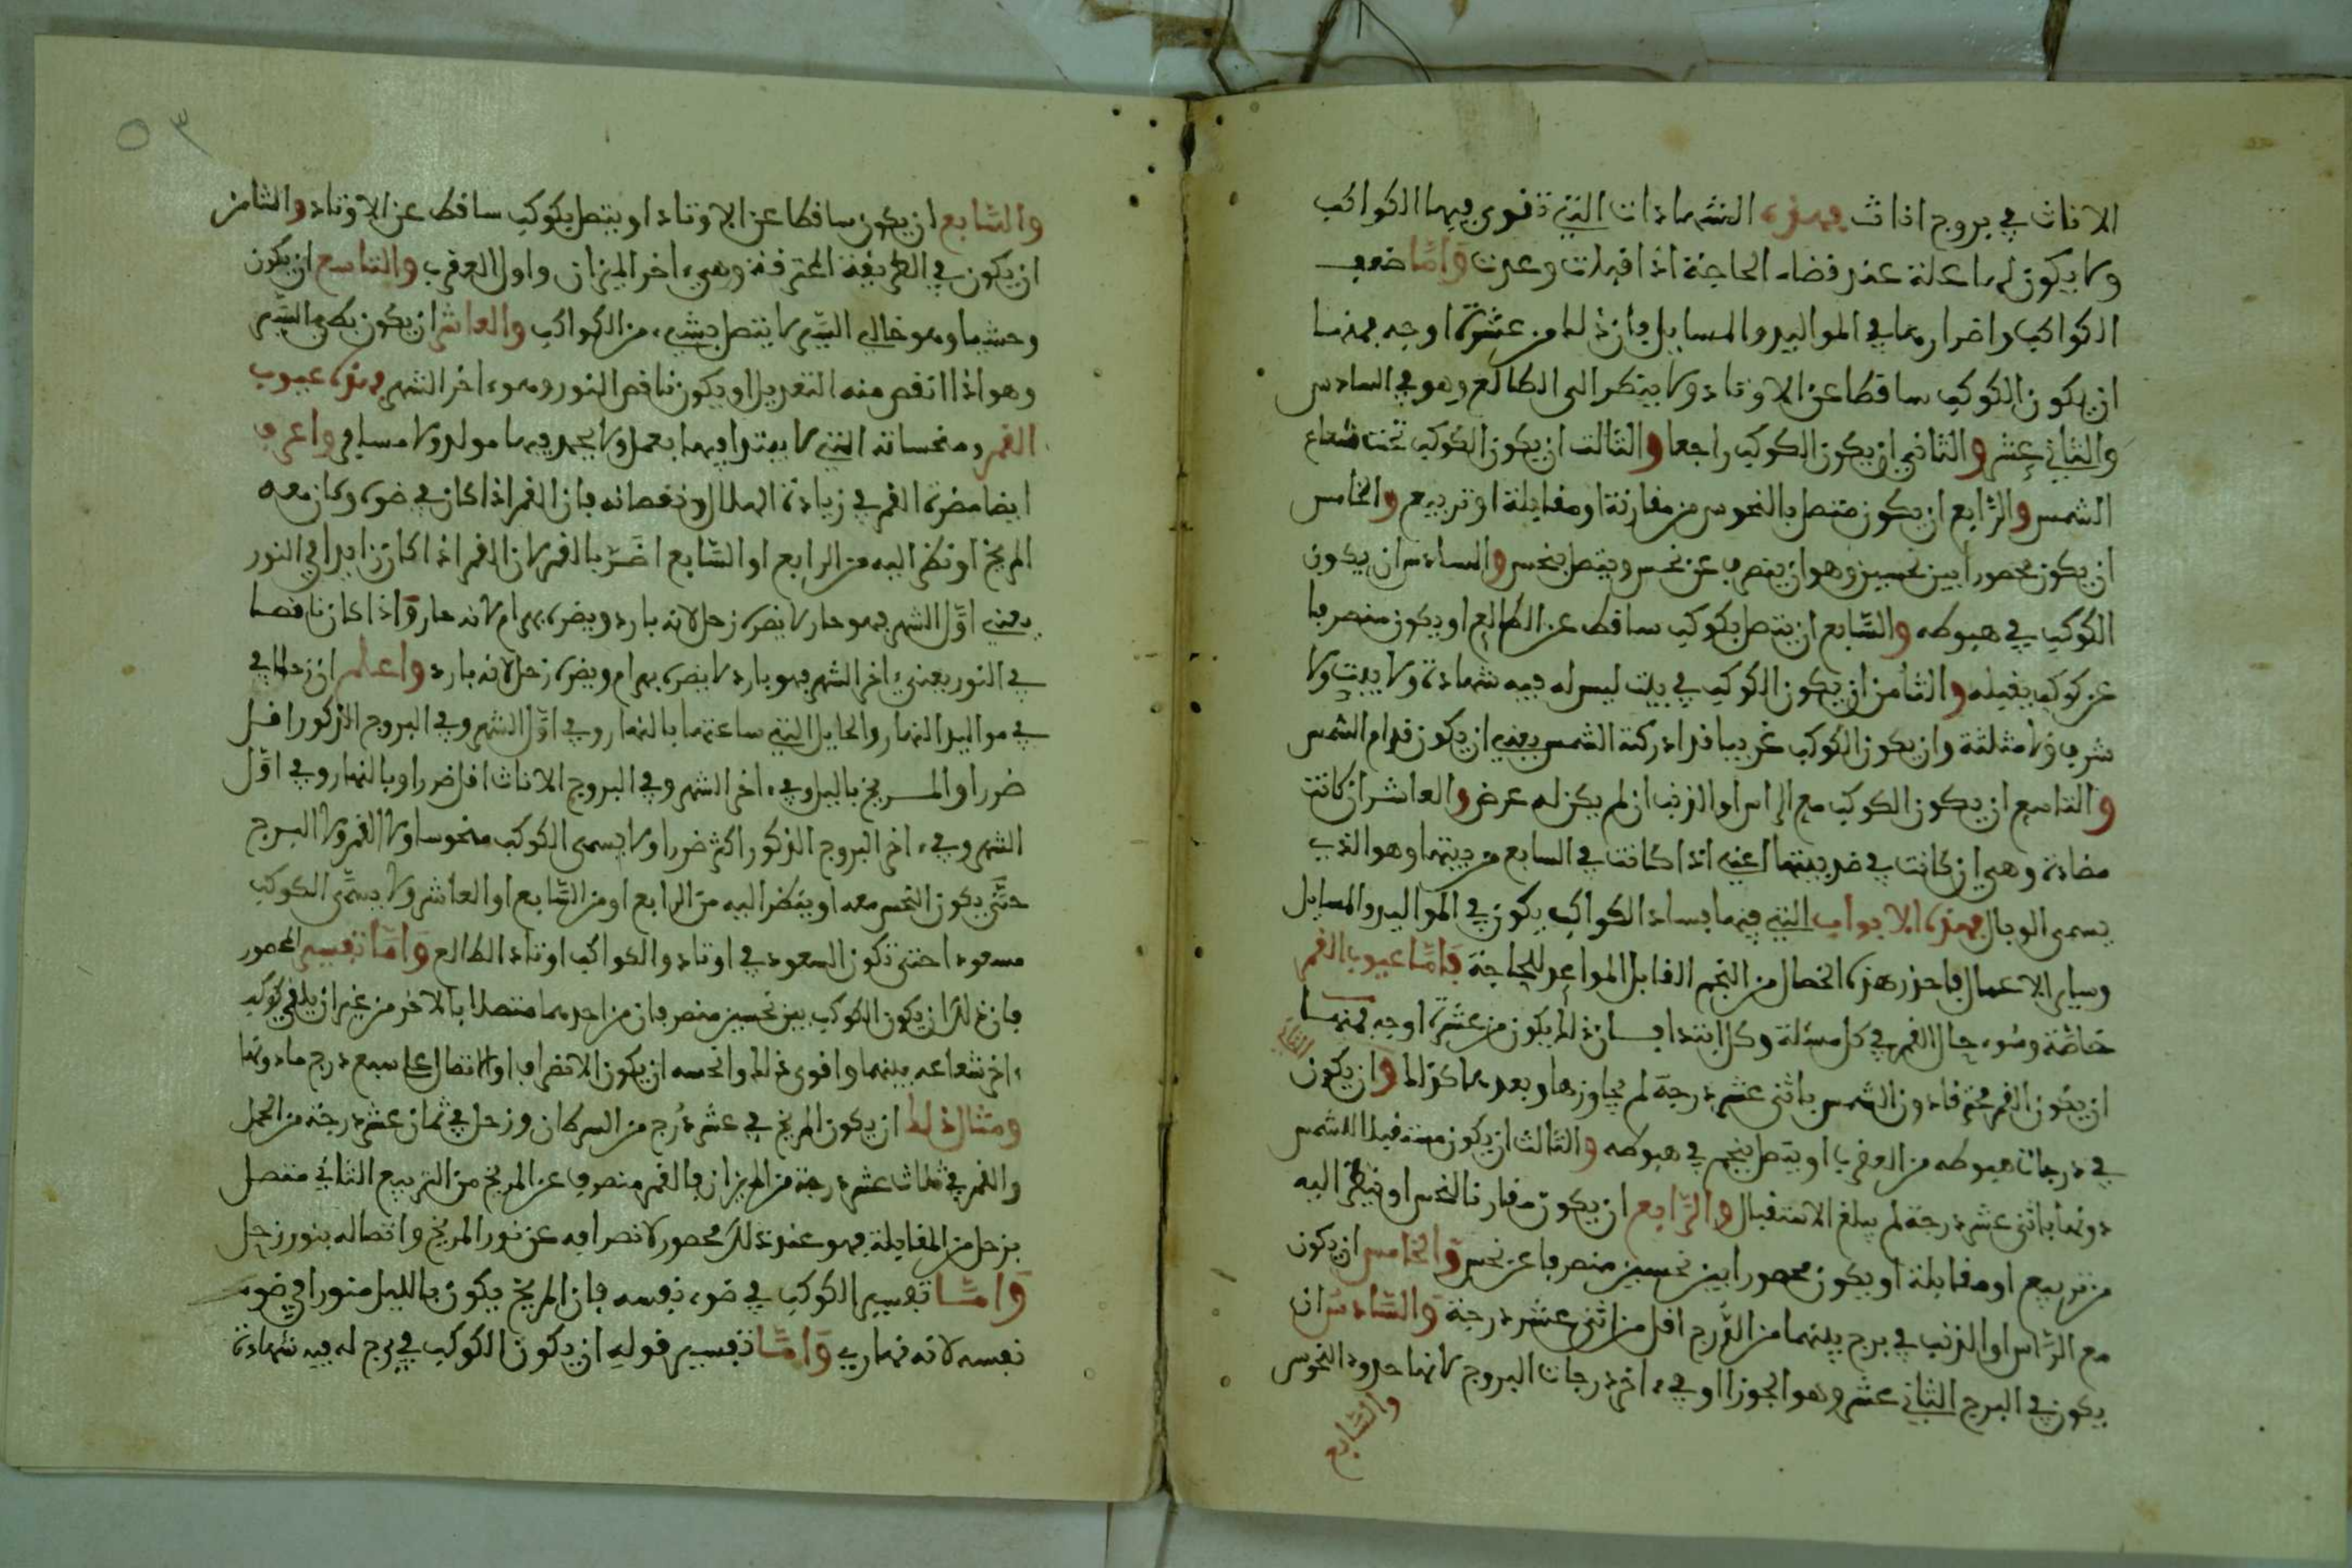 الاناث في بروج اناث فهذه الشهادات التي تقوى فيها الكواكب
ولا يكون لها علة عند قضاء الحاجة اذا اقبلت وعبرت وأما ضعف
الكواكب واضرارها في المواليد والمسايل فان ذلك من عشرة اوجه فمنها
ان يكون الكوكب ساقطا عن الاوتاد ولا ينظر الى الطالع وهو في السادس
والثاني عشر والثاني ان يكون الكوكب راجعا والثالث ان يكون الكوكب تحت شعاع
الشمس والرابع ان يكون متصل بالنحوس من مقارنة او مقابلة او تربيع والخامس
ان يكون محصورا بين نحسين وهو ان ينصرف عن نحس ويتصل بنحس والسادس ان يكون
الكوكب في هبوطه والسابع ان يتصل بكوكب ساقط عن الطالع او يكون منصرفا
عن كوكب يقبله والثامن ان يكون الكوكب في بيت ليس له فيه شهادة ولا بيت ولا
شرف ولا مثلثة وان يكون الكوكب غريبا قد ادركته الشمس يعني ان يكون قدام الشمس
والتاسع ان يكون الكوكب مع الراس او الذنب ان لم يكن له عرض والعاشر ان كانت
مضادة وهي ان كانت في ضد بيتها اعني اذا كانت في السابع من بيتها وهو الذي
يسمى الوبال فهذه الابواب التي فيها فساد الكواكب يكون في المواليد والمسايل
وساير الاعمال فاحذر هذه الخصال من النجم القابل المواعد للحاجة فأما عيوب القمر
خاصة وسوء حال القمر في كل مسئلة وكل ابتدا فان ذلك يكون من عشرة اوجه فمنها
ان يكون القمر محترقا دون الشمس باثنى عشر درجة لم يجاوزها وبعدها كذلك وان يكون
الثاني
في درجات هبوطه من العقرب او يتصل بنجم في هبوطه والثالث ان يكون مستقبلا للشمس
دونها باثنى عشر درجة لم يبلغ الاستقبال والرابع ان يكون مقارنا لنحس او ينظر اليه
من تربيع او مقابلة او يكون محصورا بين نحسين منصرفا عن نحس والخامس ان يكون
مع الراس او الذنب في برج بينهما من الدرج اقل من اثنى عشر درجة والسادس ان
يكون في البرج الثاني عشر وهو الجوزا او في اخر درجات البروج لانها حدود النحوس
والسابع
٥٣
والسابع ان يكون ساقطا عن الاوتاد او يتصل بكوكب ساقط عن الاوتاد والثامن
ان يكون في الطريقة المحترقة وهي اخر الميزان واول العقرب والتاسع ان يكون
وحشيا وهو خالي السير لا يتصل بشيء من الكواكب والعاشر ان يكون بطي السير
وهو اذا انقص منه التعديل او يكون ناقص النور وهو اخر الشهر فهذه عيوب
القمر ومنحساته التي لا يبتدا فيها بعمل ولا يحمد فيها مولد ولا مسافر واعرف
ايضا مضرة القمر في زيادة الهلال ونقصانه فان القمر اذا كان في ضوء وكان معه
المريخ او نظر اليه من الرابع او السابع اضر بالقمر لان القمر اذا كان زايدا في النور
يعني اول الشهر فهو حار لا يضره زحل لانه بارد ويضره بهرام لانه حار واذا كان ناقصا
في النور يعني اخر الشهر فهو بارد لا يضره بهرام ويضره زحل لانه بارد واعلم ان زحل في
في مواليد النهار والحايل التي ساعتها بالنهار وفي اول الشهر وفي البروج الذكور اقل
ضررا والمريخ بالليل وفي اخر الشهر وفي البروج الاناث اقل ضررا وبالنهار وفي اول
الشهر وفي اخر البروج الذكور اكثر ضررا ولا يسمى الكوكب منحوسا ولا القمر ولا البرج
حتى يكون النحس معه او ينظر اليه من الرابع او من السابع او العاشر ولا يسمى الكوكب
مسعودا حتى تكون السعود في اوتاد والكواكب اوتاد الطالع وأما تفسير المحصور
فان ذلك ان يكون الكوكب بين نحسين منصرفا من احدهما متصلا بالاخر من غير ان يلقي كوكب
اخر شعاعه بينهما واقوى ذلك وانحسه ان يكون الانصراف او الاتصال على سبع درج ما دونها
ومثال ذلك ان يكون المريخ في عشر درج من السرطان وزحل في ثمان عشر درجة من الحمل
والقمر في ثلاث عشر درجة من الميزان فالقمر منصرف عن المريخ من التربيع الثاني متصل
بزحل من المقابلة فهو عند ذلك محصور لانصرافه عن نور المريخ واتصاله بنور زحل
وأما تفسير الكوكب في ضوء نفسه فان المريخ يكون بالليل منورا في ضوء
نفسه لانه نهاري وأما تفسير قوله ان يكون الكوكب في برج له فيه شهادة